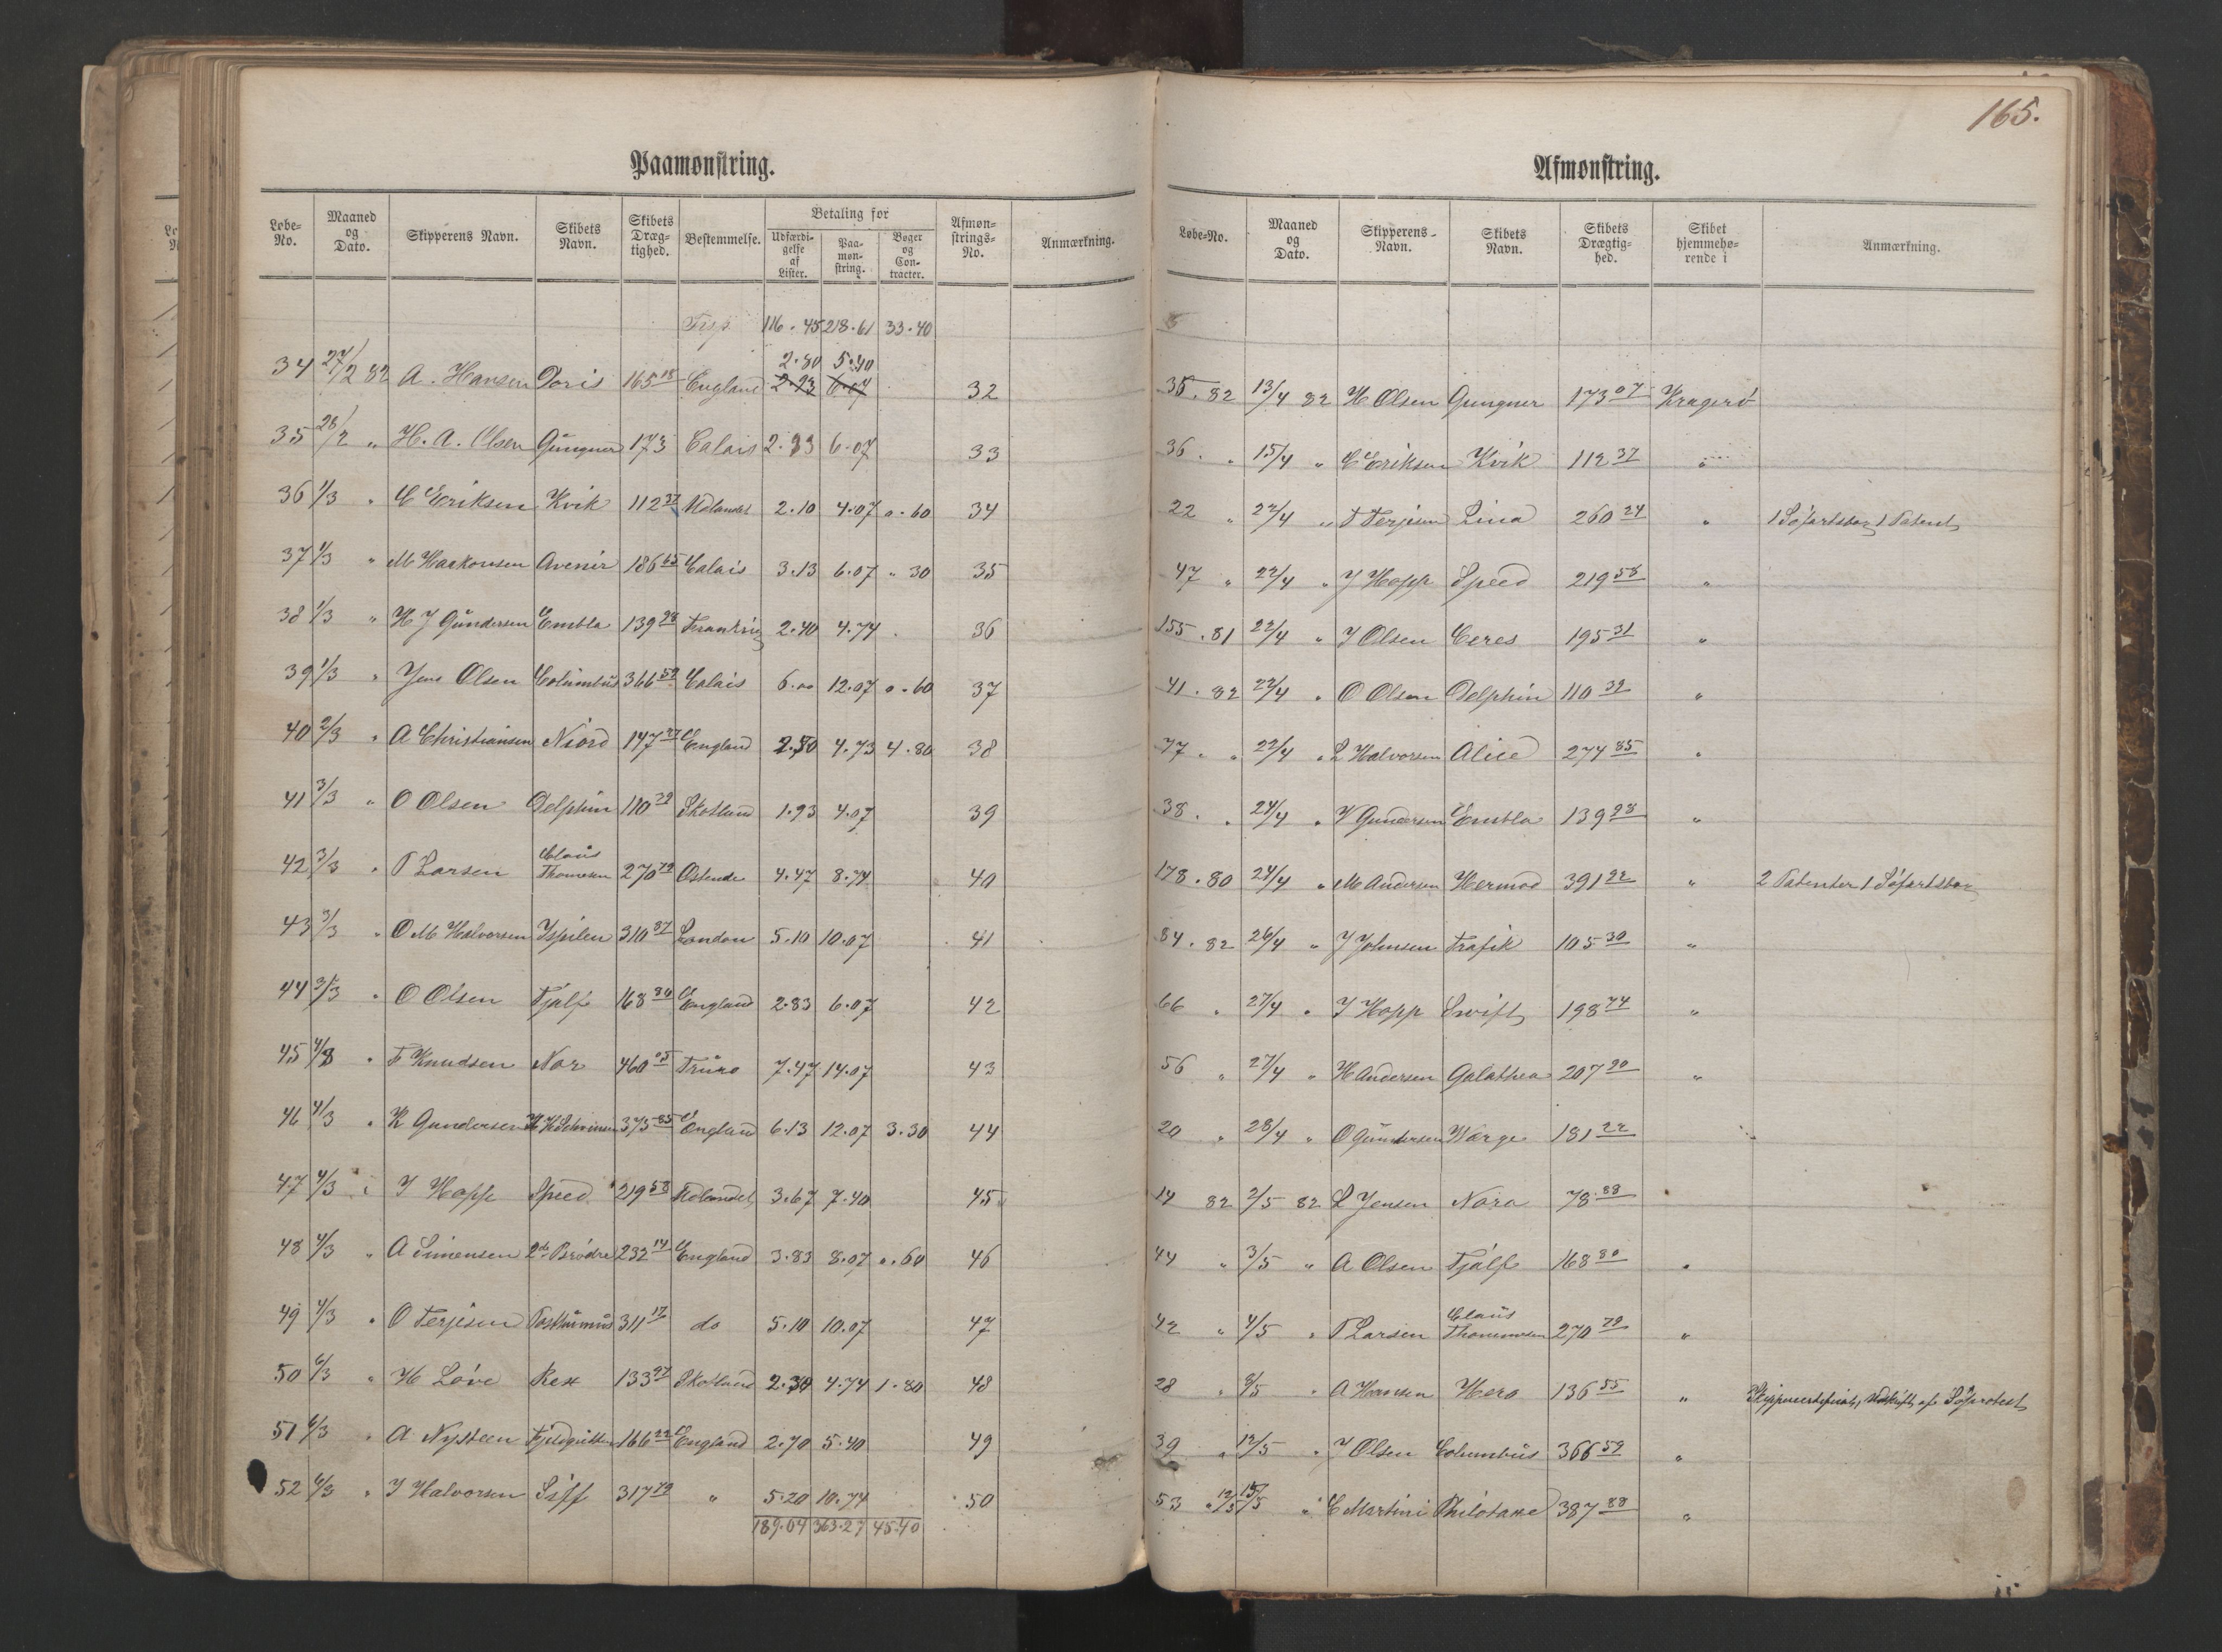 165.
Paamønstring.
Løbe-No. Maaned og Dato. Skipperens Navn. Skibets Navn. Skibets Dræg-tighed. Bestemmelse. Betaling for Udfærdi-gelse af Lister. Paa-møn-string. Bøger og Con-tracter. Afmøn-strings-No. Anmærkning.
116.45 218.61 33.40
2.80 5.40
34 27/2 82 A. Hansen Doris 165 18 England 2.93 6.07 32
35 28/2 " H. A. Olsen Gungner 173 Calais 2.93 6.07 33
36 1/3 " C Eriksen Kvik 112 37 Udlandet 2.10 4.07 0.60 34
37 1/3 " M Haakonsen Avenir 186 65 Calais 3.13 6.07 " 30 35
38 1/3 " H J Gundersen Embla 139 98 Frankrig 2.40 4.74 36
39 1/3 " Jens Olsen Columbus 366 59 Calais 6.00 12.07 0.60 37
40 2/3 " A Christiansen Niord 147 England 2.50 4.73 4.80 38
41 3/3 " O Olsen Delphin 110 39 Skotland 1.93 4.07 39
42 3/3 " T Larsen Claus Thomesen 270 79 Ostende 4.47 8.74 40
43 3/3 " O M Halvorsen Ispilen 310 87 London 5.10 10.07 41
44 3/3 " O Olsen Tjalf 168 80 England 2.83 6.07 42
45 4/3 " F Knudsen Nor 460 05 Truro 7.47 14.07 43
46 4/3 " K Gundersen 375 85 England 6.13 12.07 3.30 44
47 4/3 " J Hopp Speed 219 58 Udlandet 3.67 7.40 45
48 4/3 " A Simensen 2de Brødre 232 14 England 3.83 8.07 0.60 46
49 4/3 " O Terjesen Posthumus 311 17 do 5.10 10.07 47
50 6/3 " H Løve Rex 133 97 Skotland 2.30 4.74 1.80 48
51 6/3 " A Nysteen 166 22 England 2.70 5.40 49
52 6/3 " J Halvorsen Siff 317 79 " 5.20 10.74 50
189.04 363.27 45.40
Afmønstring.
Løbe-No. Maaned og Dato. Skipperens-Navn. Skibets Navn. Skibets Drægtig-hed. Skibet hjemmehø-rende i Anmærkning.
35.82 13/4 82 H Olsen Gungner 173 07 Kragerö
36. " 15/4 " C Eriksen Kvik 112 37 "
22 " 22/4 " T Terjesen Lina 260 24 " 1 Søfartsbog 1 Patent
47 " 22/4 " J Hopp Speed 219 58 "
155.81 22/4 " J Olsen Ceres 195 31 "
41.82 22/4 " O Olsen Delphin 110 39 "
77. " 22/4 " L Halvorsen Alice 274 85 "
38. " 24/4 " J Gundersen Embla 139 98 "
178.80 24/4 " M Andersen Hermod 391 22 " 2 Patenter 1 Søfartsbog
84.82 26/4 " J Johnsen Trafik 105 30 "
66 " 27/4 " J Hopp Swift 198 74 "
56 " 27/4 " H Andersen Galathea 207 90 "
20 " 28/4 " O Gundersen Norge 181 22 "
14 82 2/5 82 L Jensen Nora 78 88 "
44 " 3/5 " A Olsen Tjalf 168 80 "
42 " 4/5 " T Larsen Claus Thommesen 270 79 "
28 " 8/5 " A Hansen Hero 136 55 " Skippercertificat, Udskrift af Søprotest
39 " 12/5 " J Olsen Columbus 366 59 "
53 " 12/5 15/5 " C Martini Philotaxe 387 88 "